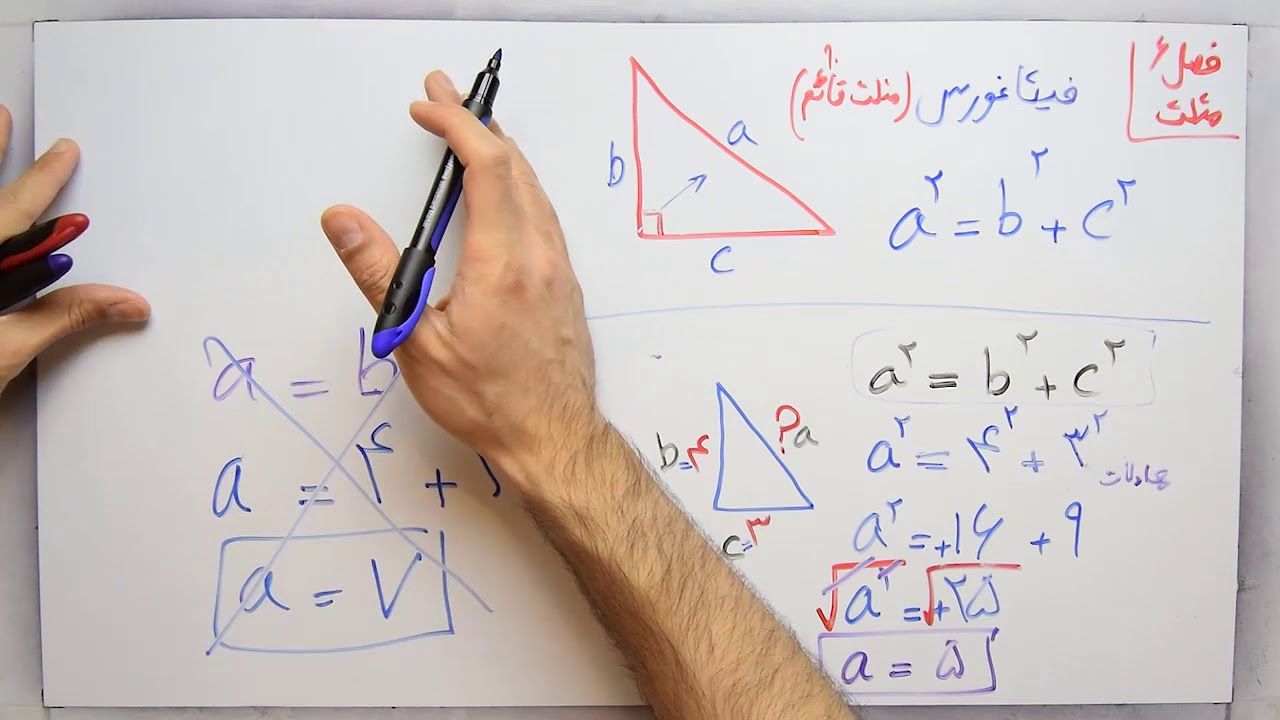 فصل ۶
مثلث
فیثاغورس (مثلث قائم)
a
b
c
a^۲ = b^۲ + c^۲
a^۲ = b^۲ + c^۲
a^۲ = ۴^۲ + ۳^۲
a^۲ = +۱۶ + ۹
√a^۲ = √+۲۵
a = ۵
b=۴
? a
c=۳
a = b
a = ۴ +
a = ۷